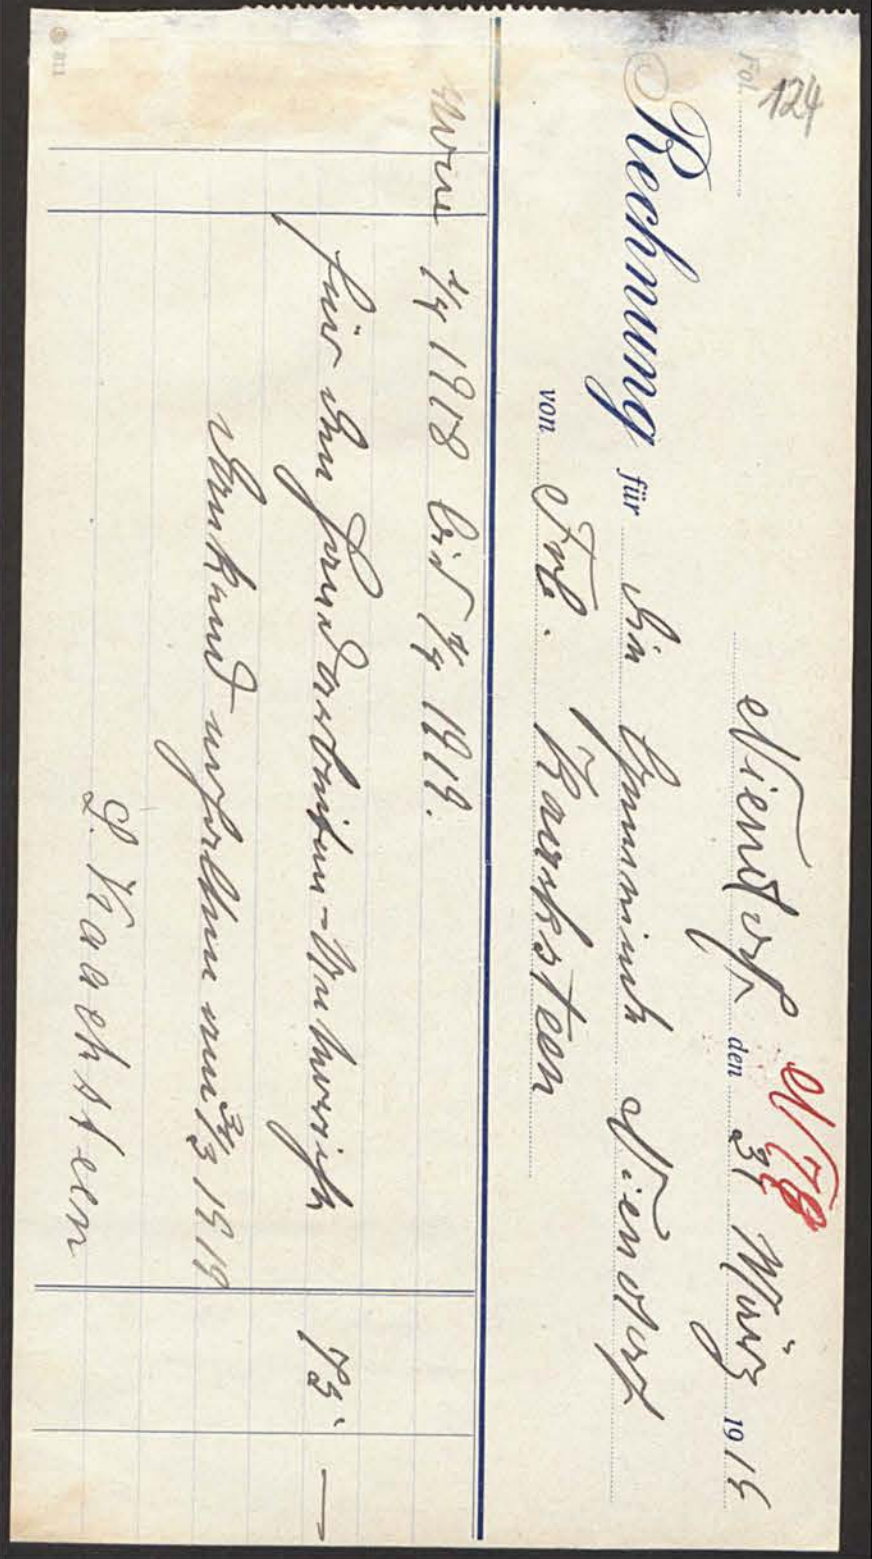 124
Fol.
N 78
Niendorf, den 31 März 1919
Rechnung für die Gemeinde Niendorf
von Frl. Kaacksteen
vom 1/4 1918 bis 1/4 1919.
für den Handarbeiten-Unterricht 75. —
Dankend erhalten am 31/3 1919
L. Kaacksteen